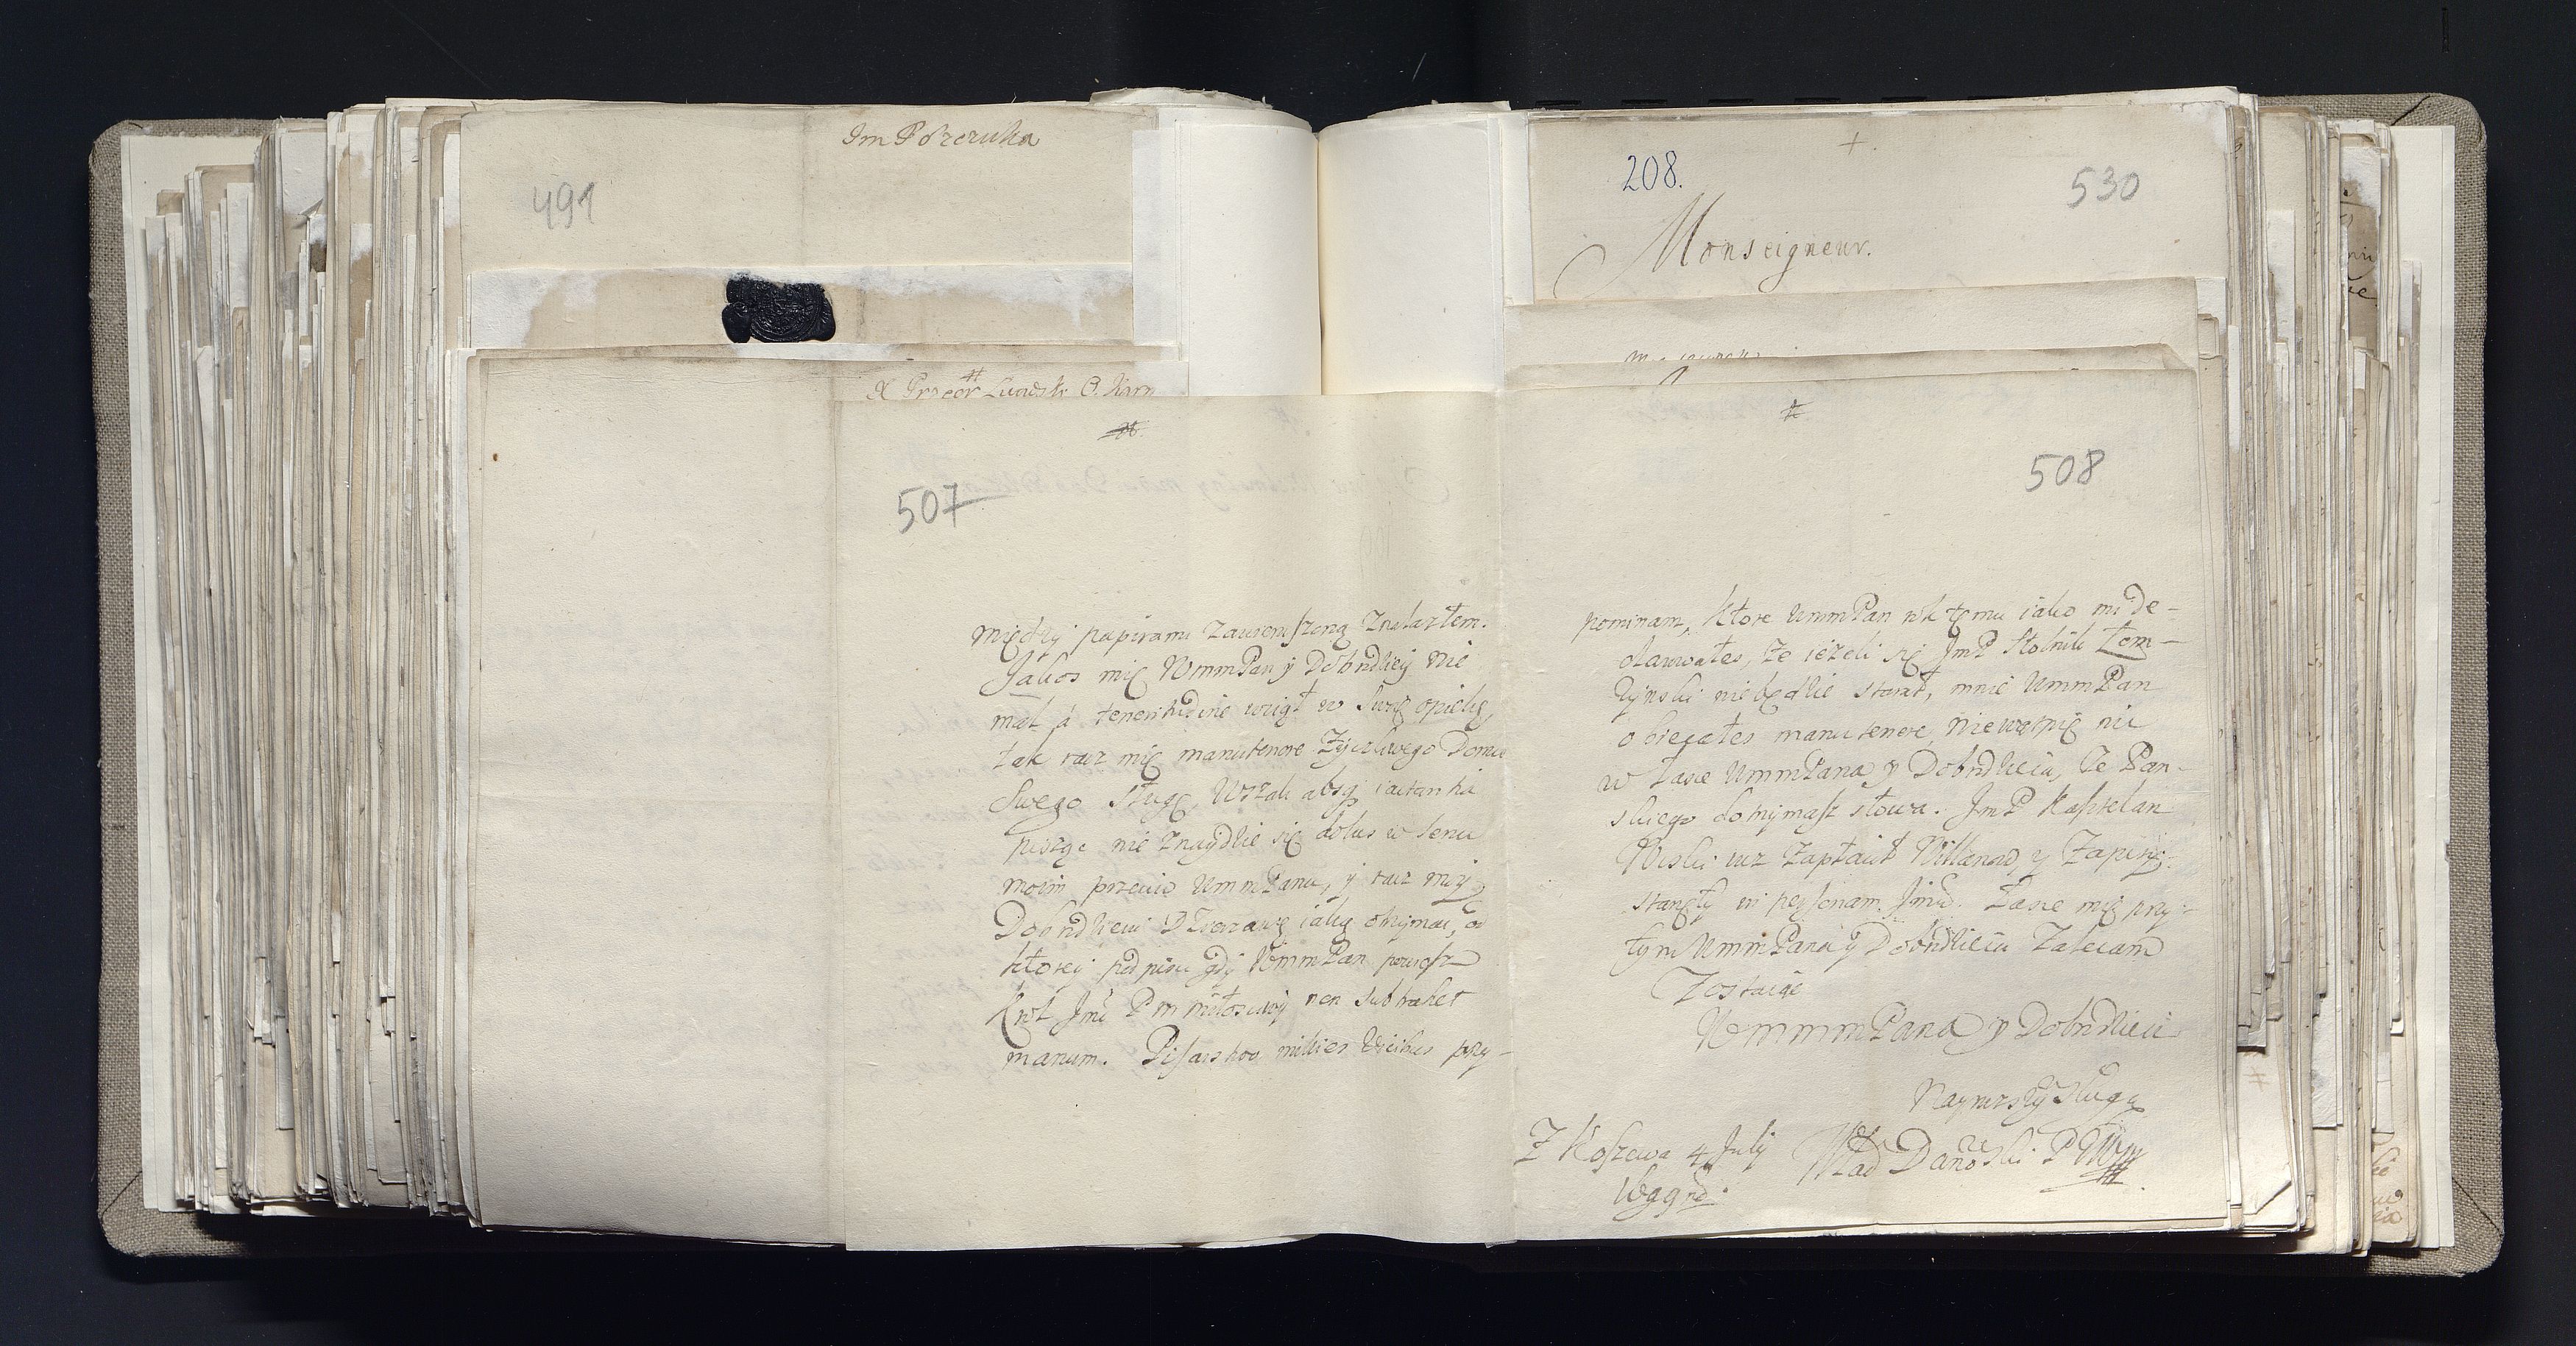 Im P Porzerucka
491
X Przeor Lwowsk O. Karm
507
między papirami zawieruszoną znalazłem.
Jakoś mię WmmPan y Dobrdziey nie
mal à teneritudine wziął w swą opiekę,
tak racz mię manutenere życzliwego Domu
swego sługę, Wszak absq iactantia
piszę nie znaydzie się dolus w sercu
moim przeciw UmmPanu, y racz mi
Dobrdzieiu Dzierzawę iaką otrzymać, od
ktorey podpisu gdy WmmPan powiesz
Krol Jmć P m miłosciwy non subtrahet
manum. Pisarstwo millies vicibus przy-
208.
+
530
Monseigneur.
508
pominam, ktore UmmPan wk temu iako mi de-
clarowałeś, że ieżeli się JmP Stolnik Łom-
żynski nie będzie starał, mnie UmmPan
obiecałeś manutenere, nie wątpię nic
w łasce UmmPana y Dobrdzieia, że Pan-
skiego dotrzymasz słowa. JmP Kasztelan
Wiski iuz zapłacił Willanow y zapisy
stanęły in personam Jmći. Łasce mię przy
tym UmmPana y Dobrdzieia zalecam
Zostaiąc
WmmmPana y Dobrdzieia
Nayniższy Sługą
Z Koszewa 4 Julij
Wład Danowski P W